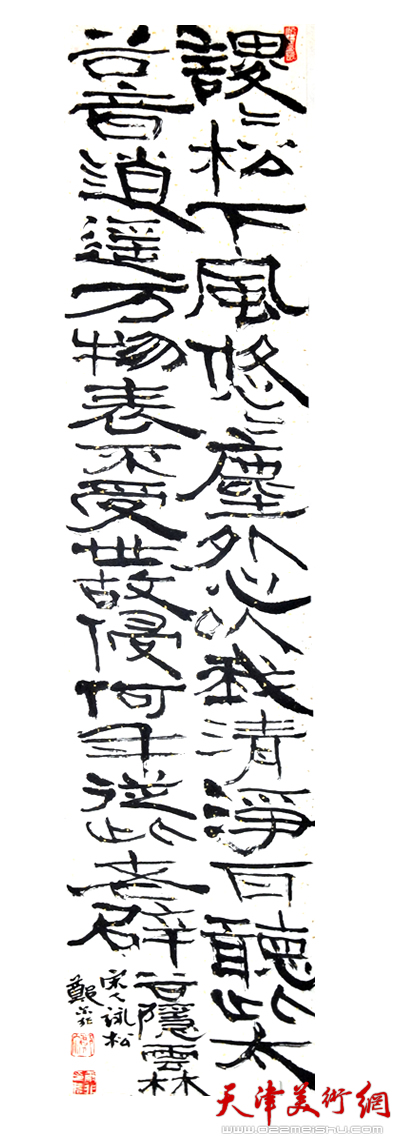 謖〻松下風悠〻塵外心以我清淨耳聽此太
古音逍遥万物表不受世故侵何年從此老辟
谷隱雲林
宋人詠松
鄭
天津美術網
www.022meishu.com